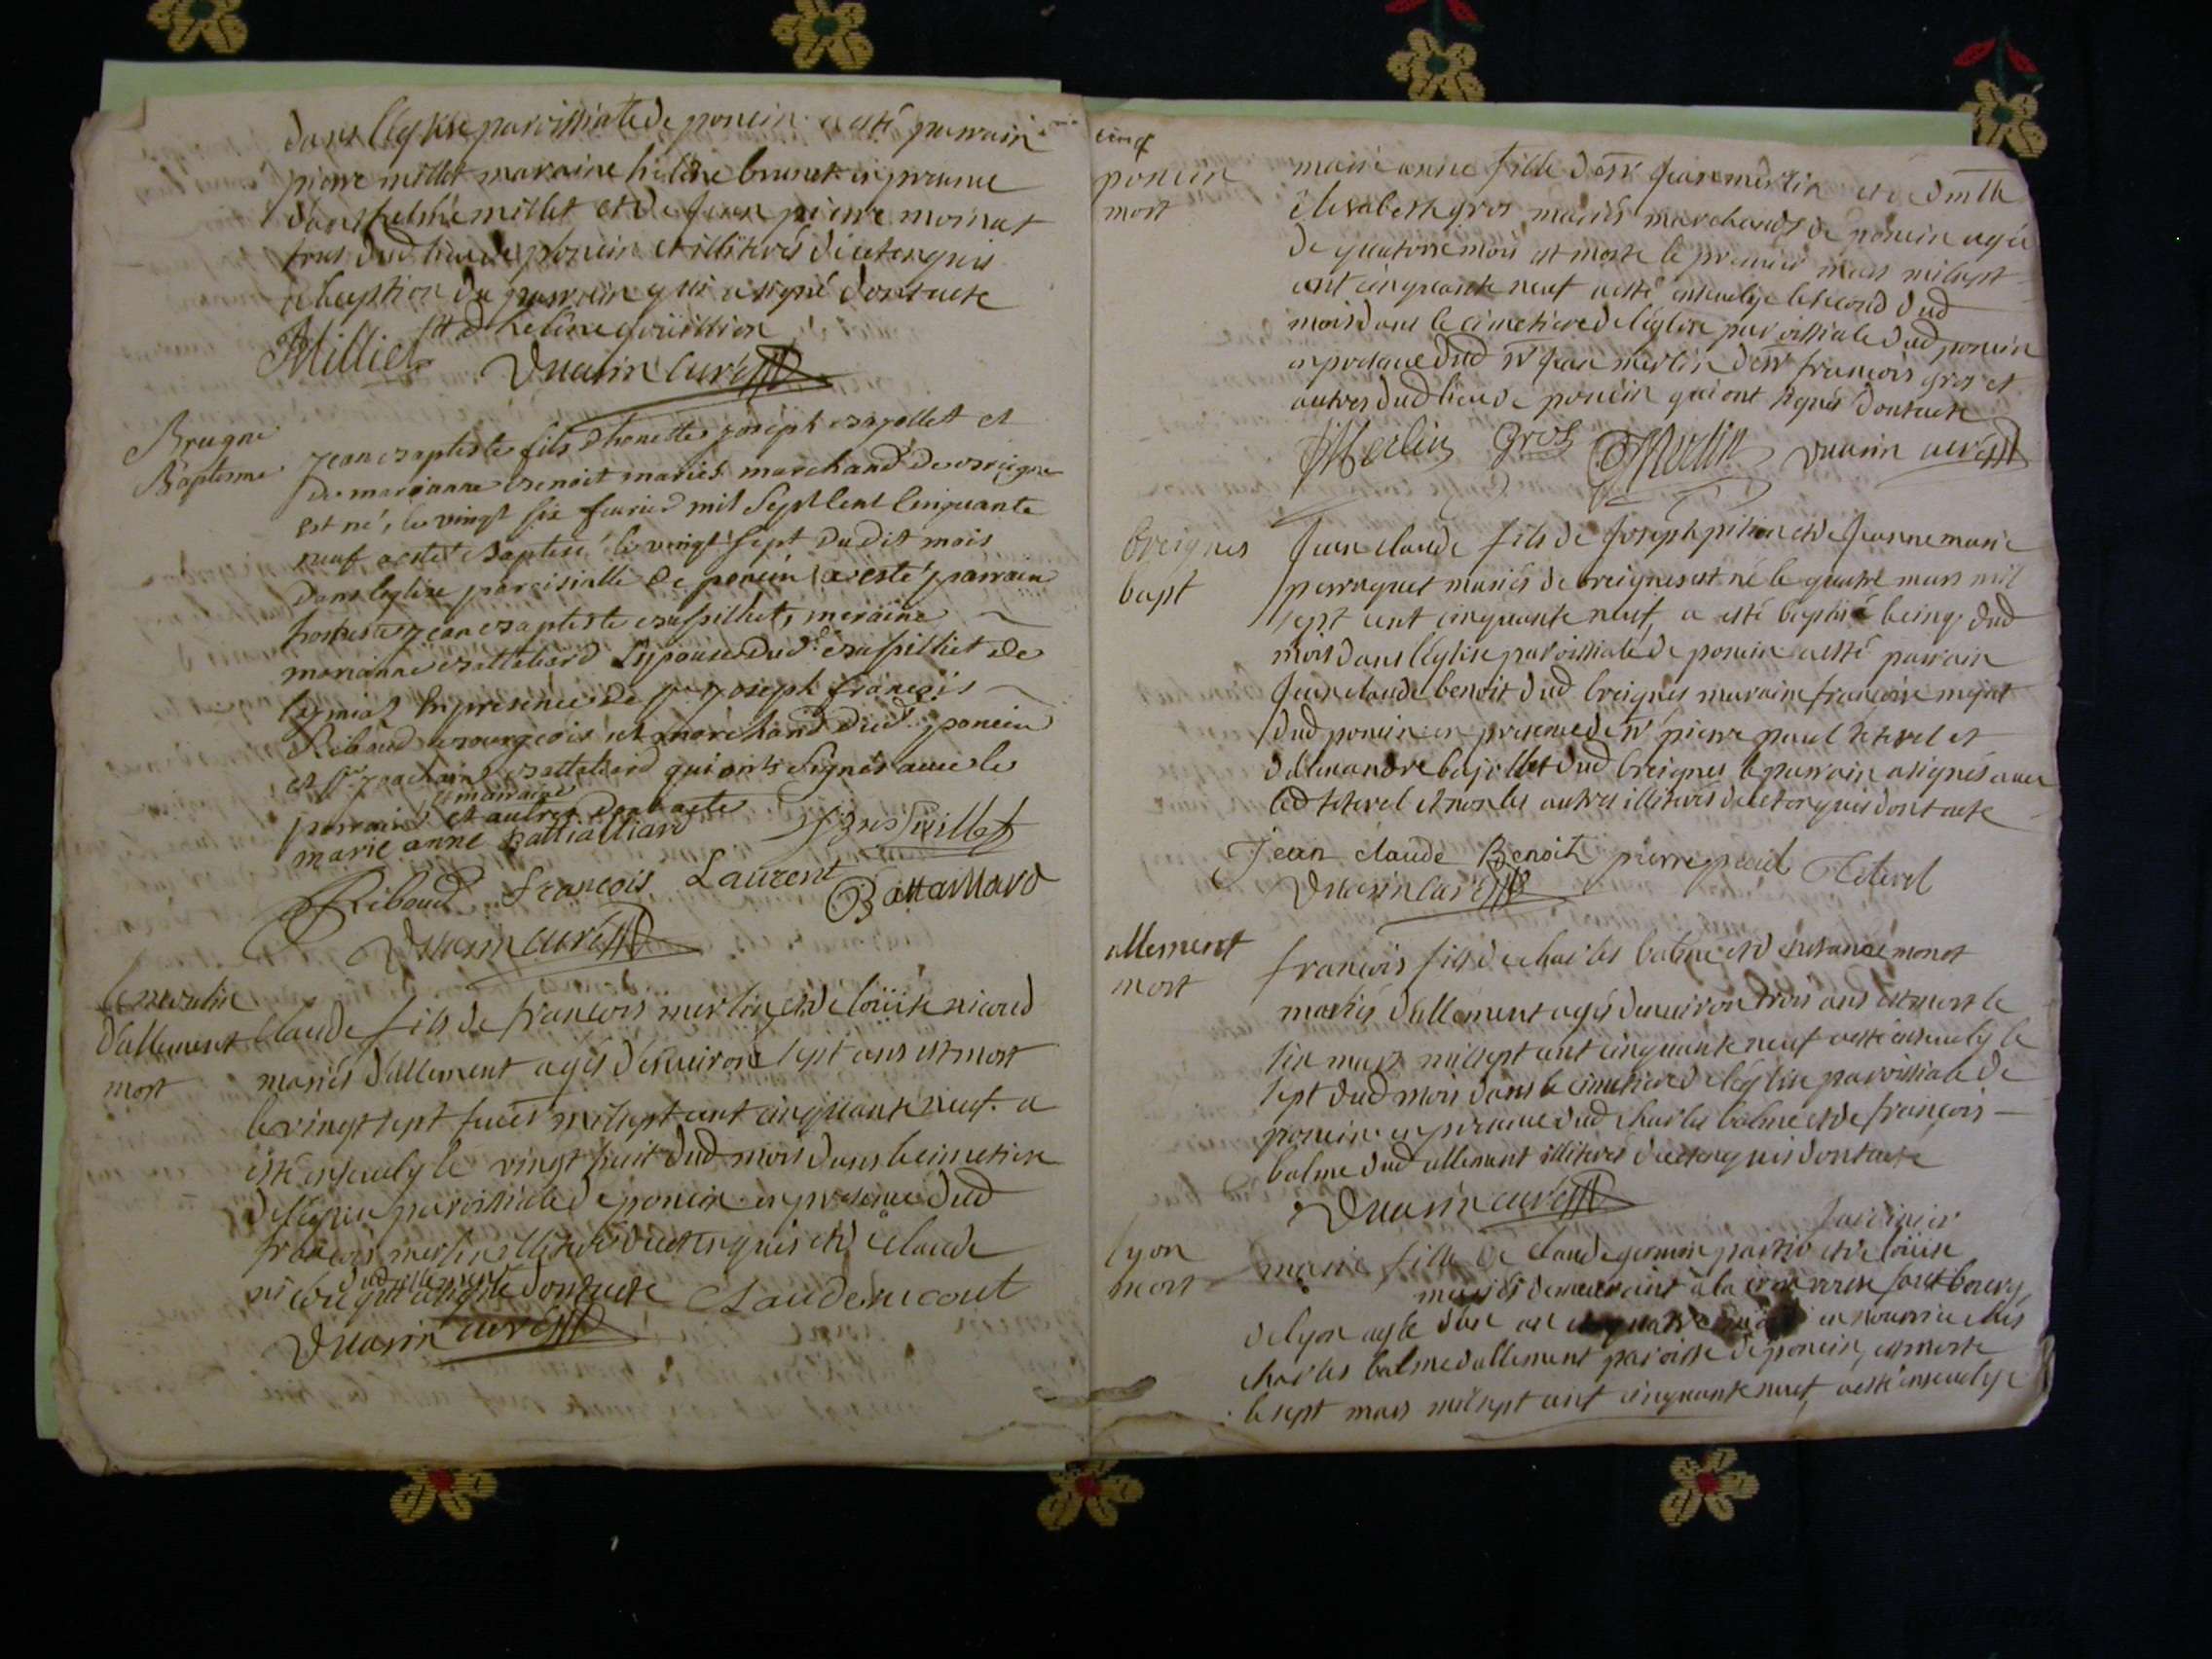 dans l'eglise paroissiale de poncin a esté parrain
pierre millet maraine helène brunet en presence
d'anthelme millet et de jean pierre moinat
tous dud lieu de poncin et illiterés de ce enquis
a l'exeption du parrain qui a signé dont acte
Milliet
Duarin curé
Breigne
Baptesme
jean Baptiste fils d'honette joseph Bajollet et
de marianne Benoit mariés marchand de Breigne
est né, le vingt six feurier mil Sept Cent Cinquante
neuf a estet Baptisé le vingt sept dudit mois
dans leglise paroisialle De poncin a esté parrain
jean Baptiste Brispilliet, meraine
marianne Battaliard Epouse dud. Brispilliet de
En presence de Sr joseph françois
Ribaud Bourgeois et marchand dud. poncin
et Sr joachim Battaliard qui onts signés auec le
parrain et marraine et autres dont acte
marie anne Battailliard
Ribaud françois Laurent Battaillard
Duarin curé
le moulin
d'allement
mort
Claude fils de françois merlin et de loüise nicoud
mariés d'allement agés d'enuiron sept ans est mort
le vingt sept feuer milsept cent cinquante neuf. a
esté enseuely le vingt huit dud mois dans le cimetiere
de l'eglise paroissiale de poncin en presence dud
françois merlin illiteré de ce enquis et de claude
dud allement
nicoud qui a signé dont acte Claude nicout
Duarin curé
cinq
poncin
mort
marie anne fille de sr jean merlin et de dmlle
Elisabeth gros mariés marchands de poncin agée
de quatorze mois est morte le premier mars milsept
cent cinquante neuf a esté enseuelye le second dud
mois dans le cimetiere de l'eglise paroissiale dud poncin
en presence dud sr jean merlin de sr françois gros et
autres dud lieu de poncin qui ont signés dont acte
Merlin Gros Merlin Duarin curé
breignes
bapt
Jean claude fils de Joseph pition et de Jeanne marie
perraquet mariés de breignes est né le quatre mars mil
sept cent cinquante neuf, a esté baptisé le cinq dud
mois dans l'eglise paroissiale de poncin a esté parrain
Jean claude benoit dud breignes maraine françoise
dud poncin en presence de sr pierre paul teterel et
d'alexandre bajollet dud breignes le parrain a signés auec
led teterel et non les autres illiterés de ce enquis dont acte
Jean claude Benoit pierre paul Teterel
Duarin curé
allement
mort
françois fils de charles balme et de susanne monot
mariés d'allement agés denuiron trois ans est mort le
six mars milsept cent cinquante neuf a esté enseuely le
sept dud mois dans le cimetiere de l'eglise paroissiale de
poncin en presence dud charles balme et de françois
balme dud allement illiterés de ce enquis dont acte
Duarin curé
lyon
mort
jardinier
marie fille de claude et de loüise
mariés demeurant a la fautbourg
de lyon agée d'un an en nourrice ches
charles balme d'allement paroisse de poncin, est morte
le sept mars milsept cent cinquante neuf, a esté enseuelye